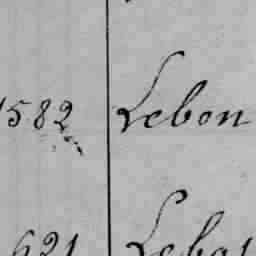 1582 Lebon
621 Lebas